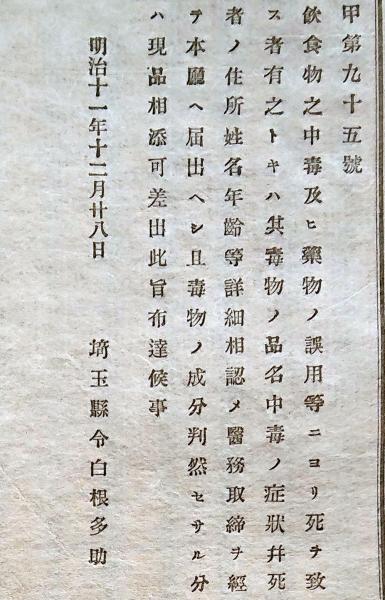 甲第九十五號
飮食物之中毒及ヒ藥物ノ誤用等ニヨリ死ヲ致
ス者有之トキハ其毒物ノ品名中毒ノ症狀幷死
者ノ住所姓名年齡等詳細相認メ醫務取締ヲ經
テ本廳ヘ届出ヘシ且毒物ノ成分判然セサル分
ハ現品相添可差出此旨布達候事
明治十一年十二月廿八日
埼玉縣令白根多助